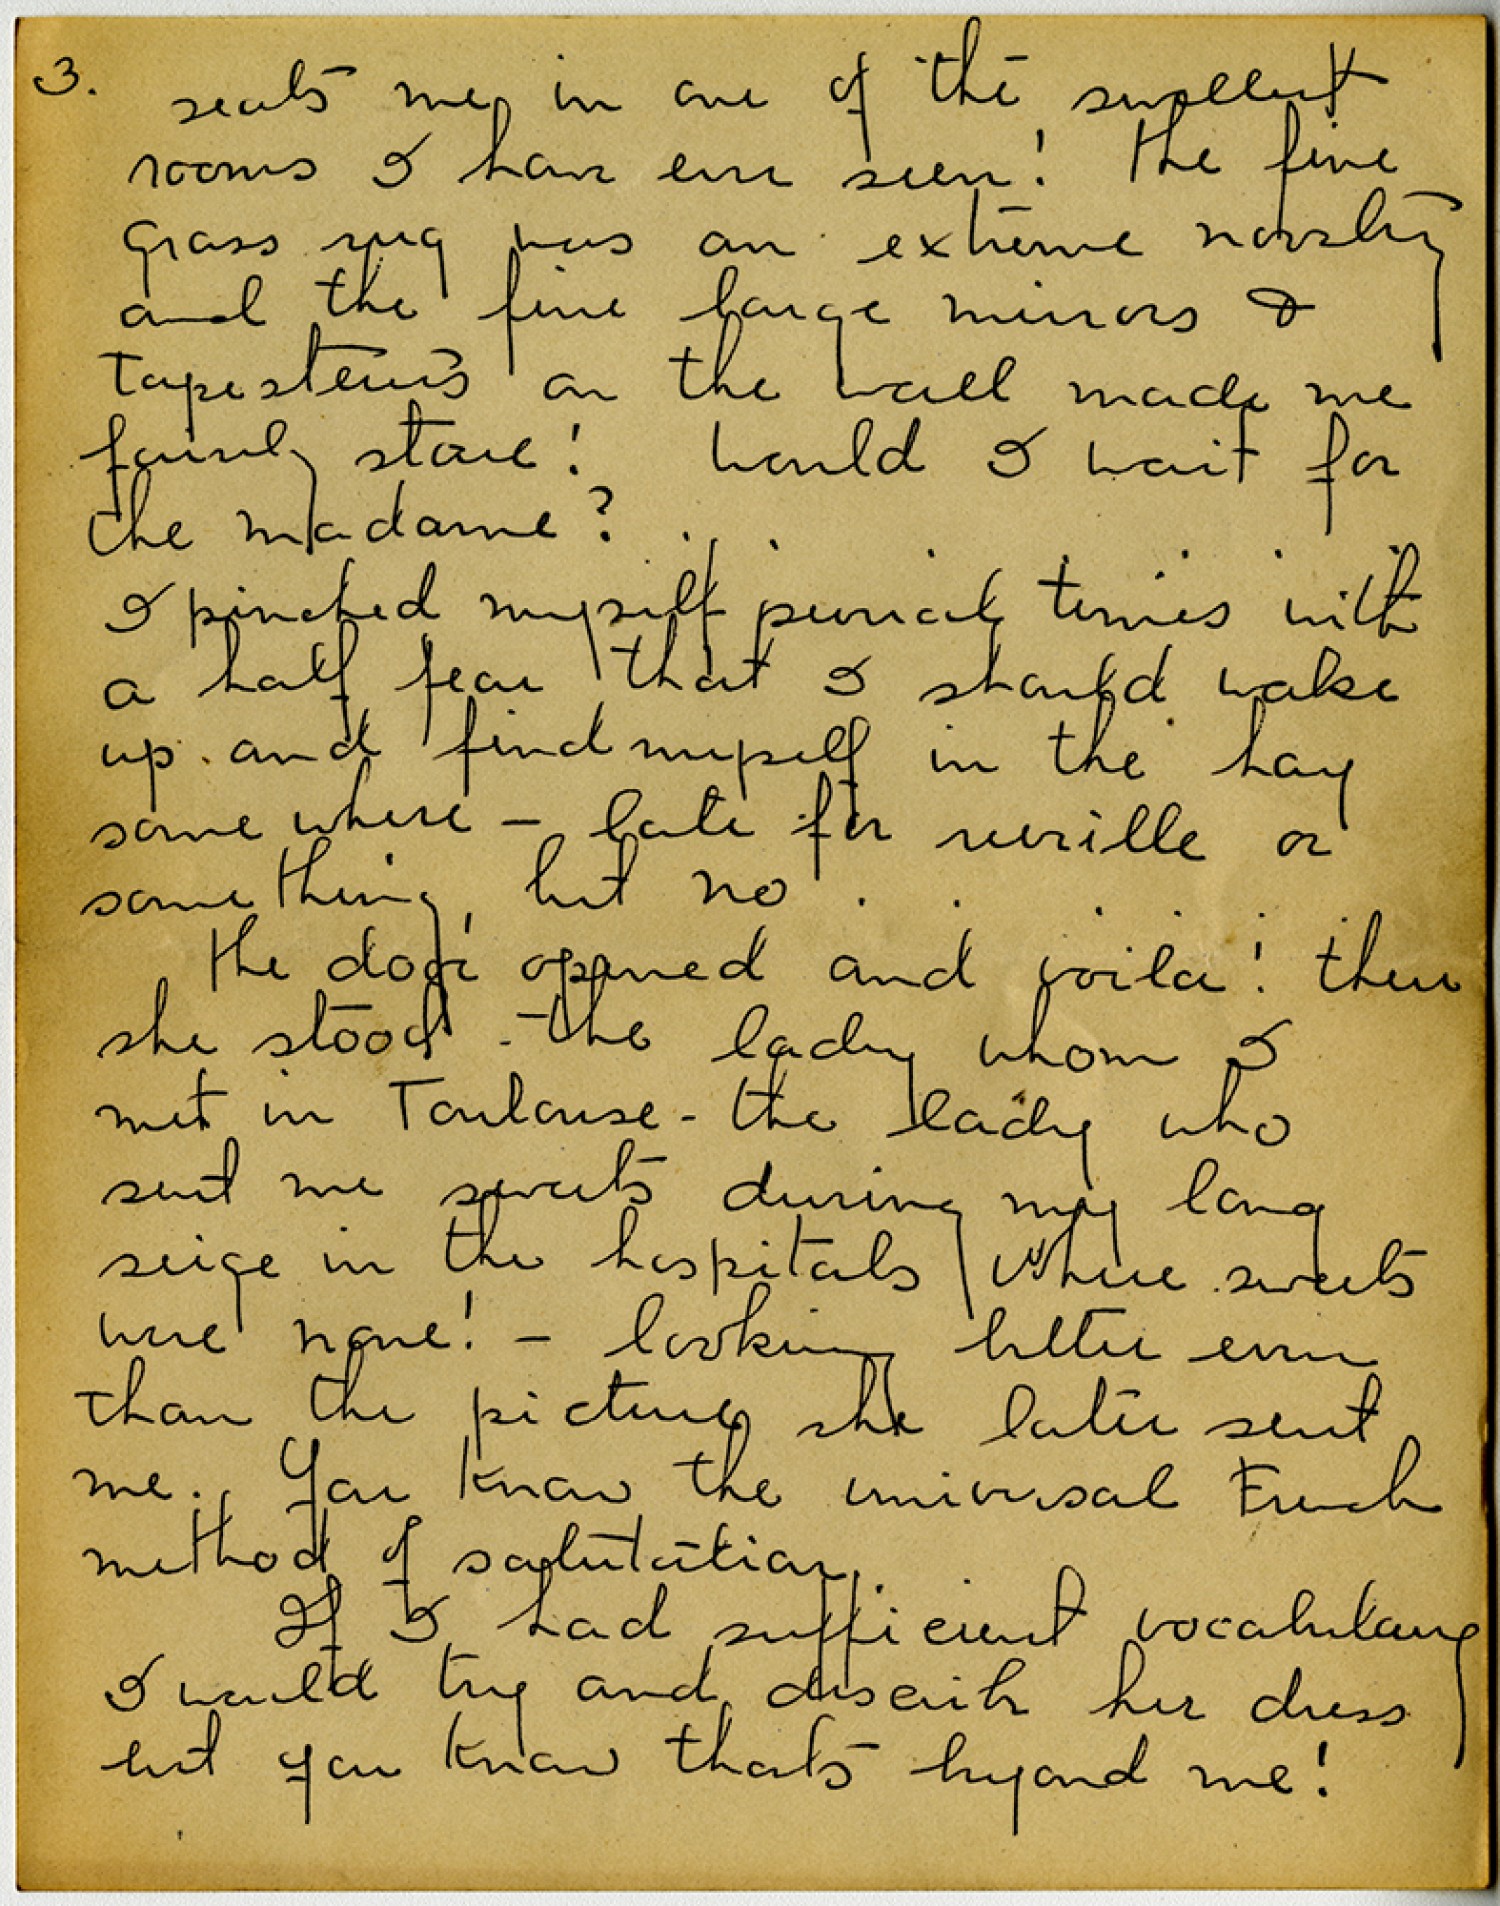 3. seats me in one of the swellest
rooms I have ever seen! The fine
grass rug was an extreme novelty
and the fine large mirrors &
tapesteries on the wall made me
fairly stare! Would I wait for
the madame? . .
I pinched myself several times with
a half fear that I should wake
up and find myself in the hay
some where – late for reveille or
something, but no . . . . .
The door opened and voila! there
she stood - the lady whom I
met in Toulouse - the lady who
sent me sweets during my long
seige in the hospitals where sweets
were none! – looking better even
than the picture she later sent
me. You know the universal French
method of salutation.
If I had sufficient vocabulary
I would try and describe her dress
but you know thats beyond me!